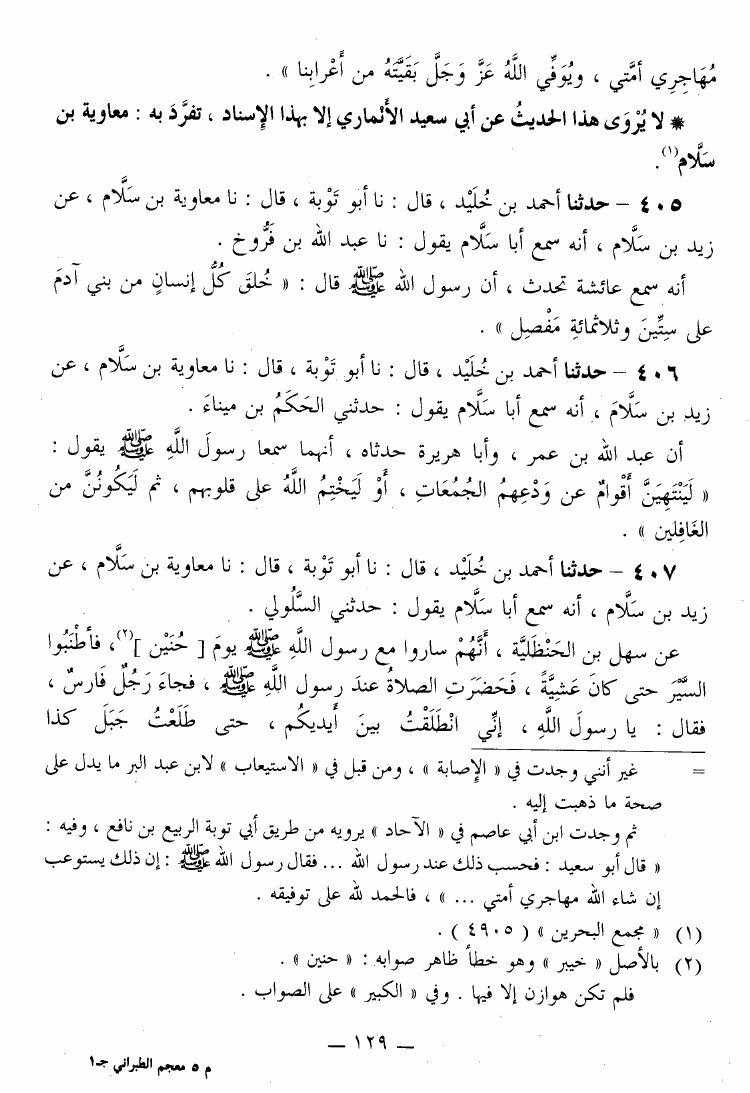 مُهَاجِرِي أمَّتي ، ويُوَفِّي اللَّهُ عَزَّ وَجَلَّ بَقِيَّتَهُ من أَعْرابِنا » .
* لا يُرْوَى هذا الحديثُ عن أبي سعيد الأَنْماري إلا بهذا الإسناد ، تفرَّدَ به : معاوية بن
سَلَّام(١).
٤٠٥ – حدثنا أحمد بن خُلَيْد ، قال : نا أبو تَوْبة ، قال : نا معاوية بن سَلَّام ، عن
زيد بن سَلَّام ، أنه سمع أبا سَلَّام يقول : نا عبد الله بن فَرُّوخ .
أنه سمع عائشة تحدث ، أن رسول الله ﷺ قال : « خُلقَ كُلُّ إنسانٍ من بني آدمَ
على سِتِّينَ وثلاثمائةِ مَفْصِل » .
٤٠٦ – حدثنا أحمد بن خُلَيْد ، قال : نا أبو تَوْبة ، قال : نا معاوية بن سَلَّام ، عن
زيد بن سَلَّامَ ، أنه سمع أبا سَلَّام يقول : حدثني الحَكَمُ بن ميناءَ .
أن عبد الله بن عمر ، وأبا هريرة حدثاه ، أنهما سمعا رسولَ اللَّهِ ﷺ يقول :
« لَيَنْتَهِيَنَّ أَقْوامٌ عن وَدْعِهمُ الجُمُعَاتِ ، أَوْ لَيَخْتِمُ اللَّهُ على قلوبهم ، ثم لَيَكُونُنَّ من
الغَافِلين » .
٤٠٧ – حدثنا أحمد بن خُلَيْد ، قال : نا أبو تَوْبة ، قال : نا معاوية بن سَلَّام ، عن
زيد بن سَلَّام ، أنه سمع أبا سَلَّام يقول : حدثني السَّلُولي .
عن سهل بن الحَنْظَليَّة ، أَنَّهُمْ ساروا مع رسول اللَّهِ ﷺ يومَ [ حُنَيْن ](٢)، فأطْنَبُوا
السَّيْرَ حتى كانَ عَشِيَّةً ، فَحَضَرَتِ الصلاةُ عندَ رسول اللَّهِ ﷺ ، فجاءَ رَجُلٌ فَارسٌ ،
فقال : يا رسولَ اللَّهِ ، إنِّي انْطَلَقْتُ بينَ أَيديكُم ، حتى طَلَعْتُ جَبَلَ كذا
= غير أنني وجدت في « الإصابة » ، ومن قبل في « الاستيعاب » لابن عبد البر ما يدل على
صحة ما ذهبت إليه .
ثم وجدت ابن أبي عاصم في « الآحاد » يرويه من طريق أبي توبة الربيع بن نافع ، وفيه :
« قال أبو سعيد : فحسب ذلك عند رسول الله ... فقال رسول الله ﷺ : إن ذلك يستوعب
إن شاء الله مهاجري أمتي ... » ، فالحمد لله على توفيقه .
(١) « مجمع البحرين » ( ٤٩٠٥ ) .
(٢) بالأصل « خيبر » وهو خطأ ظاهر صوابه : « حنين » .
فلم تكن هوازن إلا فيها . وفي « الكبير » على الصواب .
– ١٢٩ –
م ٥ معجم الطبراني جـ١